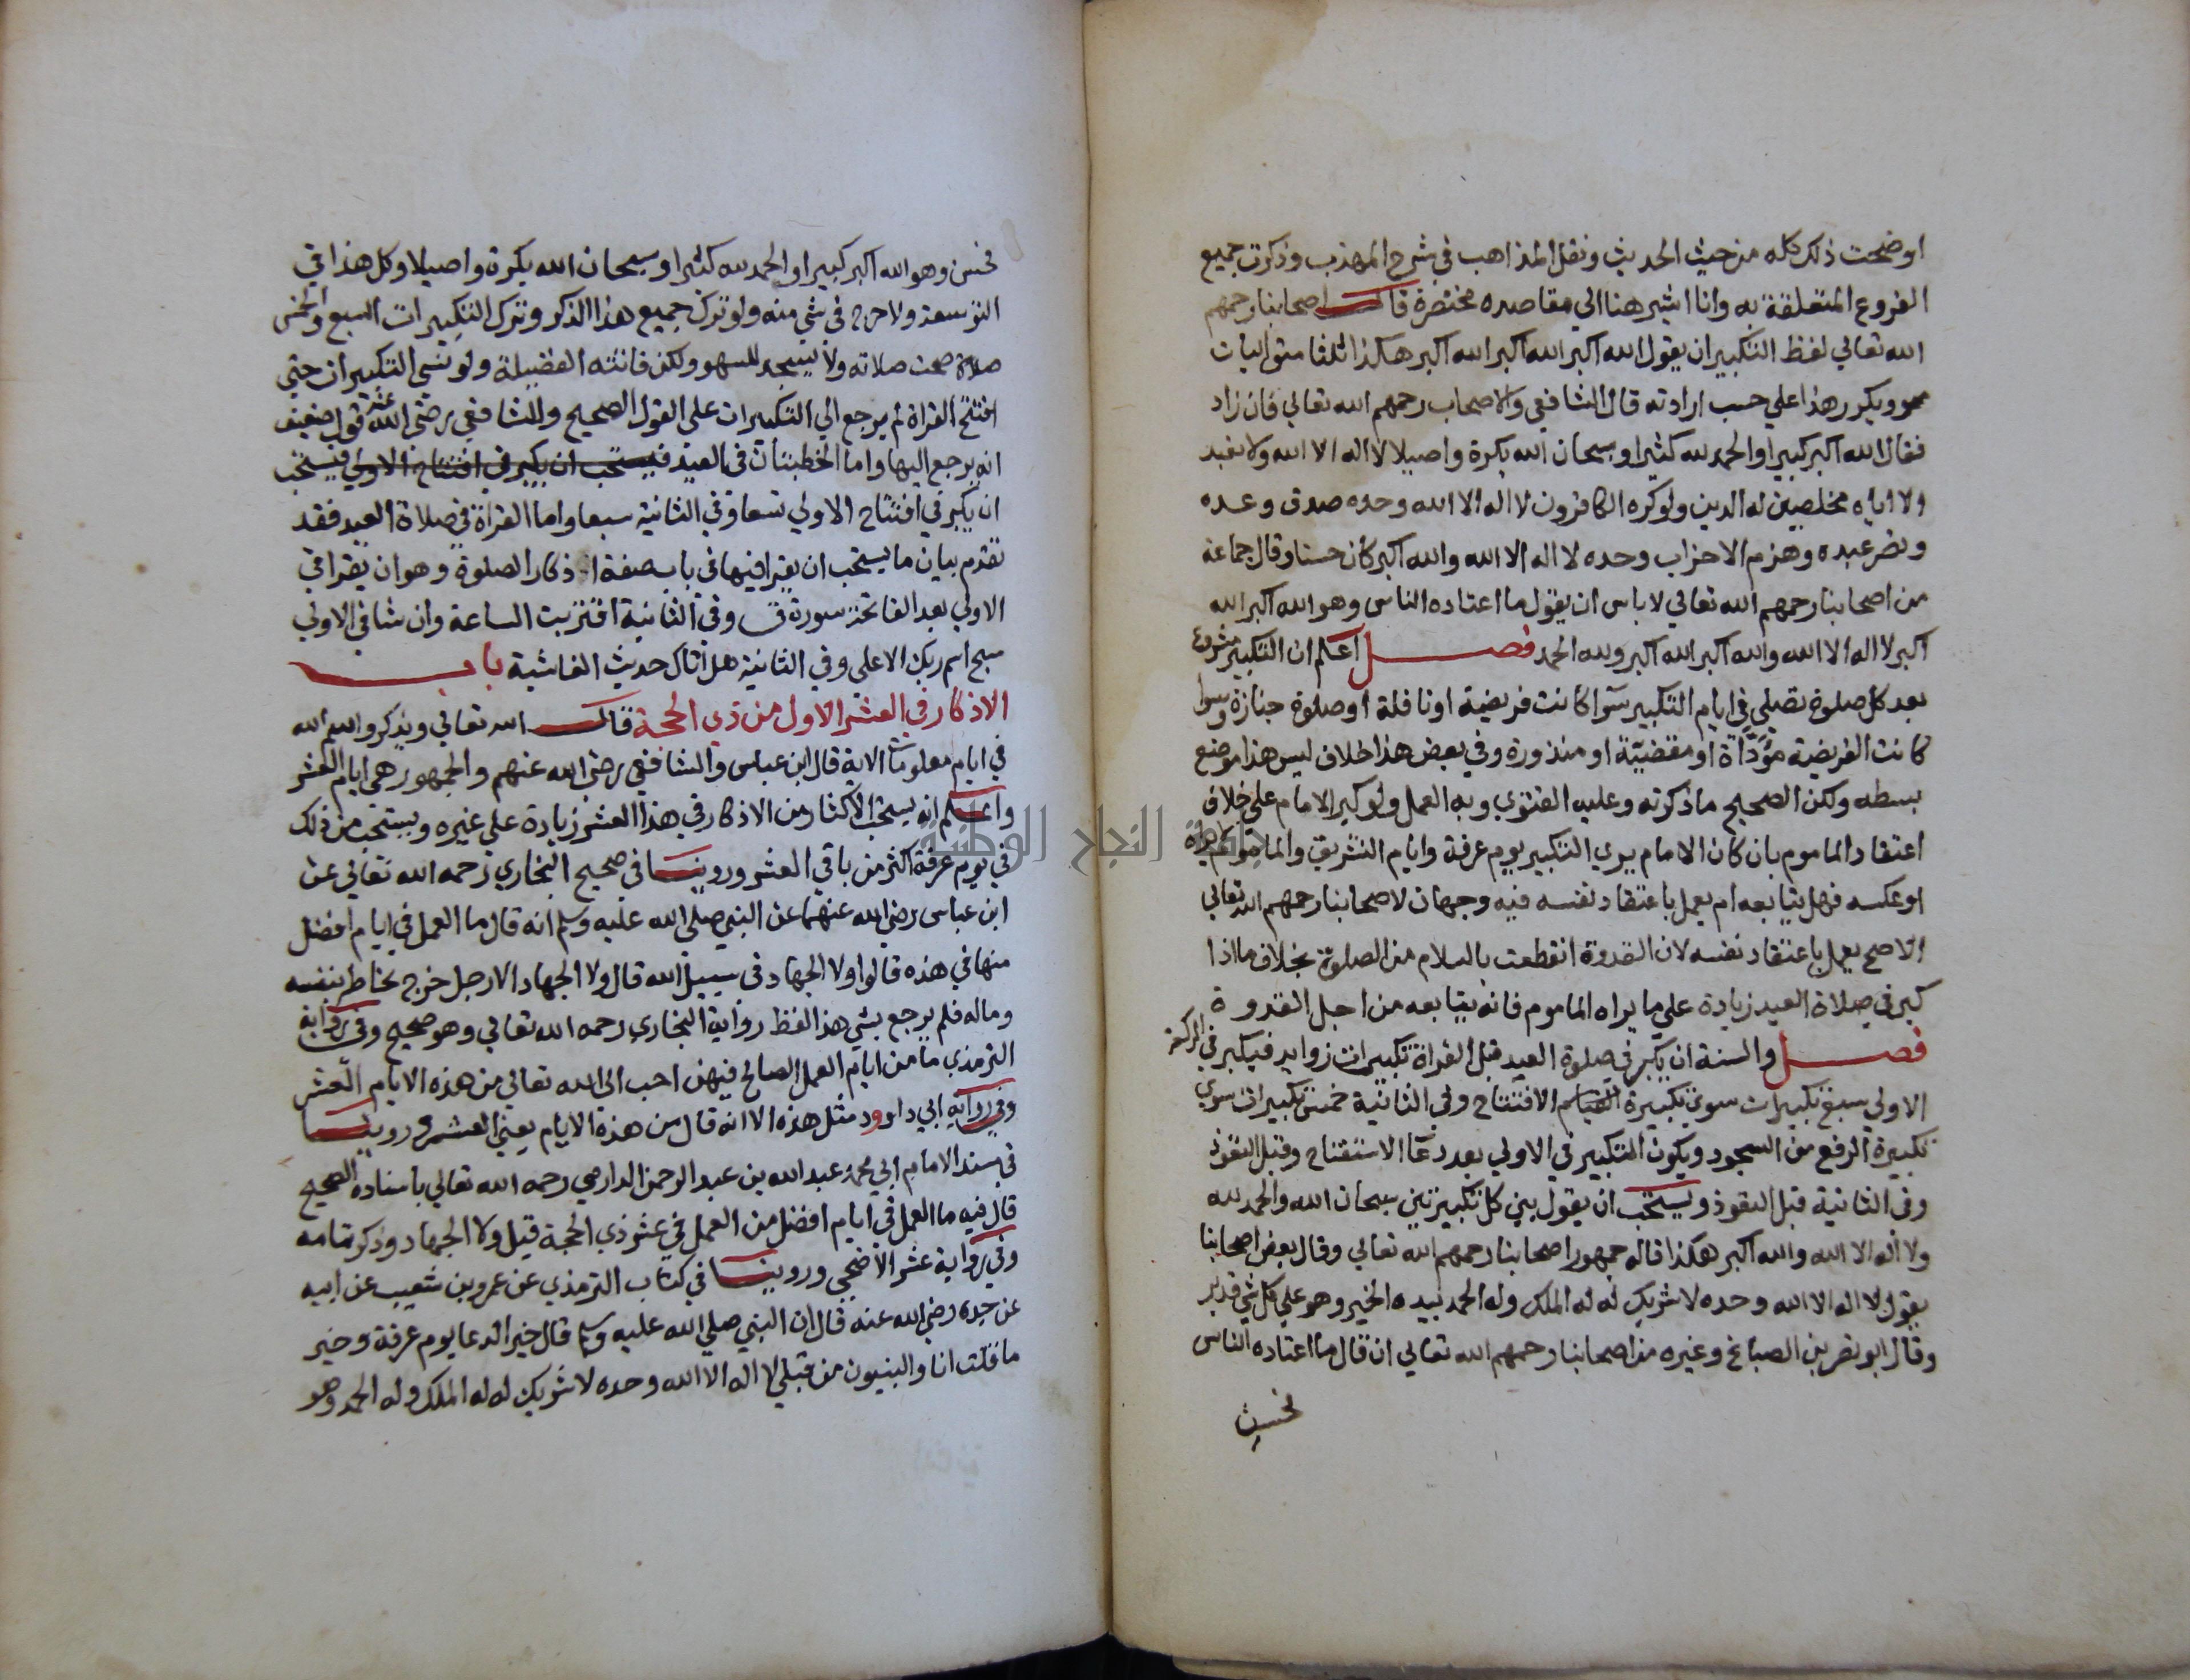 اوضحت ذلك كله من حيث الحديث ونقل المذاهب في شرح المهذب وذكرت جميع
الفروع المتعلقة به وانا اشير هنا الي مقاصده مختصرة قال اصحابنا رحمهم
الله تعالي لفظ التكبير ان يقول الله اكبر الله اكبر الله اكبر هكذا ثلثا متواليات
ويكرر هذا علي حسب ارادته قال الشافعي والاصحاب رحمهم الله تعالي فان زاد
فقال الله اكبر كبيرا والحمد لله كثيرا وسبحان الله بكرة واصيلا لا اله الا الله ولا نعبد
الا اياه مخلصين له الدين ولو كره الكافرون لا اله الا الله وحده صدق وعده
ونصر عبده وهزم الاحزاب وحده لا اله الا الله والله اكبر كان حسنا وقال جماعة
من اصحابنا رحمهم الله تعالي لا باس ان يقول ما اعتاده الناس وهو الله اكبر الله
اكبر لا اله الا الله والله اكبر الله اكبر ولله الحمد فصل اعلم ان التكبير مشروع
بعد كل صلوة تصلي في ايام التكبير سوآ كانت فريضية او نافلة او صلوة جنازة وسوا
كانت الفريضية مؤدّاة او مقضيّة او منذورة وفي بعض هذا خلاف ليس هذا موضع
بسطه ولكن الصحيح ما ذكرته وعليه الفتوي وبه العمل ولو كبر الامام علي خلاف
اعتقاد الماموم بان كان الامام يري التكبير يوم عرفة وايام التشريق والماموم لا يراه
او عكسه فهل يتابعه ام يعمل باعتقاد نفسه فيه وجهان لاصحابنا رحمهم الله تعالي
الاصح يعمل باعتقاد نفسه لان القدوة انقطعت بالسلام من الصلوة بخلاف ما اذا
كبر في صلاة العيد زيادة علي ما يراه الماموم فانه يتابعه من اجل القدوة
فصل والسنة ان يكبر في صلوة العيد قبل القراة تكبيرات زوايد فيكبر في الركعة
الاولي سبع تكبيرات سوي تكبيرة الافتتاح وفي الثانية خمس تكبيرات سوي
تكبيرة الرفع من السجود ويكون التكبير في الاولي بعد دعآ الاستفتاح وقبل التعوذ
وفي الثانية قبل التعوذ ويستحب ان يقول بين كل تكبيرتين سبحان الله والحمد لله
ولا اله الا الله والله اكبر هكذا قاله جمهور اصحابنا رحمهم الله تعالي وقال بعض اصحابنا
يقول لا اله الا الله وحده لا شريك له له الملك وله الحمد بيده الخير وهو علي كل شي قدير
وقال ابو نصر بن الصباغ وغيره من اصحابنا رحمهم الله تعالي ان قال ما اعتاده الناس
فحسن
فحسن وهو الله اكبر كبيرا والحمد لله كثيرا وسبحان الله بكرة واصيلا وكل هذا في
التوسعة ولا حرج في شي منه ولو ترك جميع هذا الذكر وترك التكبيرات السبع والخمس
صلاة صحت صلاته ولا يسجد للسهو ولكن فاتته الفضيلة ولو نسي التكبيرات حتي
افتتح القراة لم يرجع الي التكبيرات علي القول الصحيح وللشافعي رضي الله عنه قول ضعيف
انه يرجع اليها واما الخطبتان في العيد فيستحب ان يكبر في افتتاح الاولي فيستحب
ان يكبر في افتتاح الاولي تسعا وفي الثانية سبعا واما القراة في صلاة العيد فقد
تقدم بيان ما يستحب ان يقرا فيها في باب صفة اذكار الصلوة وهو ان يقرا في
الاولي بعد الفاتحة سورة ق وفي الثانية اقتربت الساعة وان شا في الاولي
سبح اسم ربك الاعلي وفي الثانية هل اتاك حديث الغاشية باب
الاذكار في العشر الاول من ذي الحجة قال الله تعالي ويذكروا اسم الله
في ايام معلومات الاية قال ابن عباس والشافعي رضي الله عنهم والجمهور هي ايام العشر
واعلم انه يستحب الاكثار من الاذكار في هذا العشر زيادة علي غيره ويستحب من ذلك
في يوم عرفة اكثر من باقي العشر وروينا في صحيح البخاري رحمه الله تعالي عن
ابن عباس رضي الله عنهما عن النبي صلي الله عليه وسلم انه قال ما العمل في ايام افضل
منها في هذه قالوا ولا الجهاد في سبيل الله قال ولا الجهاد الا رجل خرج يخاطر بنفسه
وماله فلم يرجع بشي هذا لفظ رواية البخاري رحمه الله تعالي وهو صحيح وفي رواية
الترمذي ما من ايام العمل الصالح فيهن احب الي الله تعالي من هذه الايام العشر
وفي رواية ابي داوود مثل هذه الا انه قال من هذة الايام يعني العشر وروينا
في مسند الامام ابي محمد عبد الله بن عبد الرحمن الدارمي رحمه الله تعالي باسناده الصحيح
قال فيه ما العمل في ايام افضل من العمل في عشر ذي الحجة قيل ولا الجهاد وذكر تمامه
وفي رواية عشر الاضحي وروينا في كتاب الترمذي عن عمرو بن شعيب عن ابيه
عن جده رضي الله عنه قال ان النبي صلي الله عليه وسلم قال خير الدعا يوم عرفة وخير
ما قلت انا والنبيون من قبلي لا اله الا الله وحده لا شريك له له الملك وله الحمد وهو
النجاح الوطنية